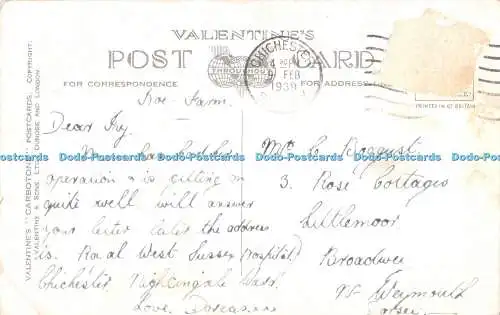 VALENTINE'S
POST CARD
FOR CORRESPONDENCE
FOR ADDRESS
THROUGHOUT
CHICHESTER
FEB
1939
PRINTED IN GT BRITAIN
VALENTINE'S "CARBOTONE" POSTCARDS. COPYRIGHT.
VALENTINE & SONS LTD. DUNDEE AND LONDON
Farm.
Dear Ivy.
has had her
operation & is getting on
quite well will answer
your letter later the address
is. Royal West Sussex Hospital
Chichester. Nightingale Ward.
Love.
3. Rose Cottages
Littlemoor
Broadwey
Nr Weymouth
Dorset
Dodo-Postcards Dodo-Postcards Dodo-Postcards Dodo-Postcards Dodo-Postcards